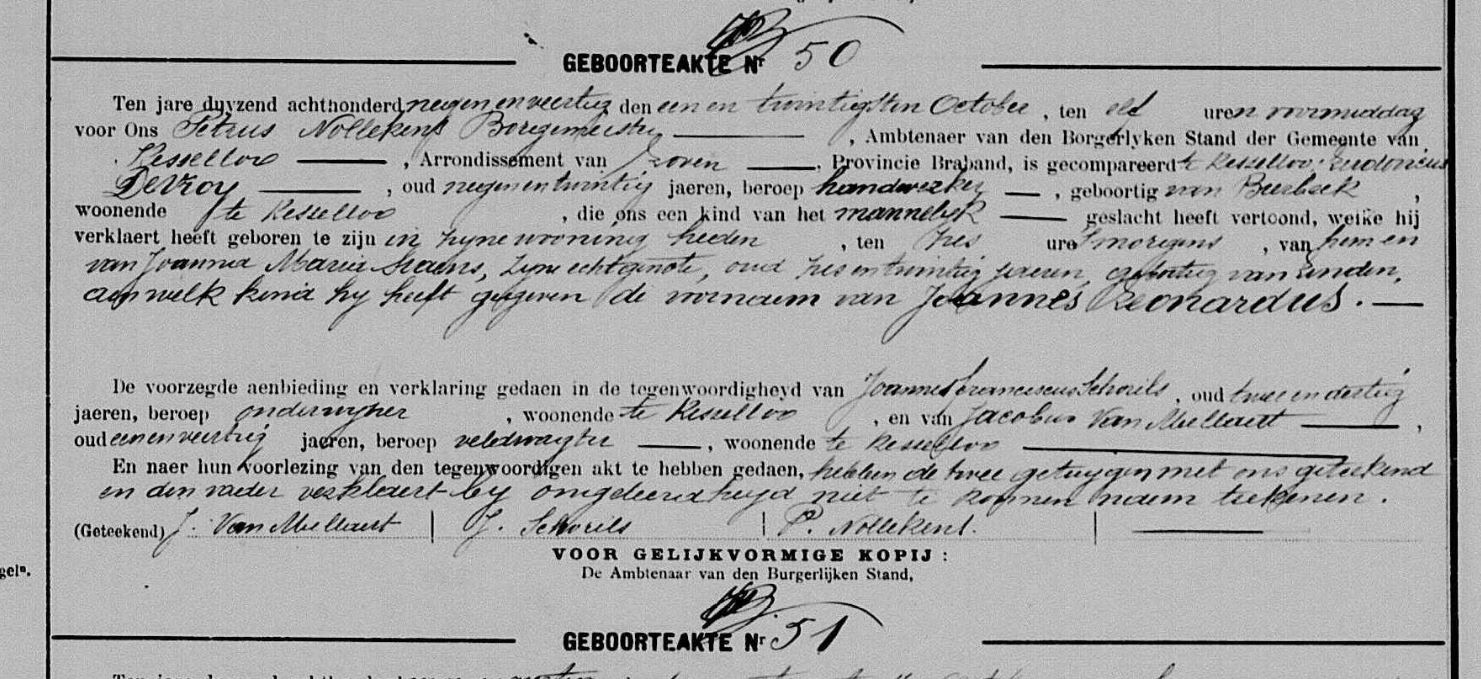 GEBOORTEAKTE Nr 50
Ten jare duyzend achthonderd negen en veertig den een en twintigsten October, ten elf uren voormiddag
voor Ons Petrus Nollekens Borgemeester, Ambtenaer van den Borgerlyken Stand der Gemeente van
Kessello, Arrondissement van Loven, Provincie Braband, is gecompareerd te Kessello
Devroy, oud negen en twintig jaeren, beroep handwerker, geboortig van Bierbeek,
woonende te Kessello, die ons een kind van het mannelyk geslacht heeft vertoond, welke hij
verklaert heeft geboren te zijn in zyne wooning heden, ten zes ure 's morgens, van hem en
van Joanna Maria, zyne echtgenote, oud zes en twintig jaeren, geboortig van Linden,
aen welk kind hy heeft gegeven de voornaem van Joannes Leonardus.
De voorzegde aenbieding en verklaring gedaen in de tegenwoordigheyd van Joannes Franciscus Schorils, oud twee en dertig
jaeren, beroep onderwyzer, woonende te Kessello, en van Jacobus Van Millaert,
oud een en veertig jaeren, beroep veldwagter, woonende te Kessello
En naer hun voorlezing van den tegenwoordigen akt te hebben gedaen, hebben de twee getuygen met ons geteekend
en den vader verklaert by ongeleerdheyd niet te konnen naem teekenen.
(Geteekend) J. Van Millaert | J. Schorils | P. Nollekens. |
VOOR GELIJKVORMIGE KOPIJ :
De Ambtenaar van den Burgerlijken Stand,
gels.
GEBOORTEAKTE Nr 51